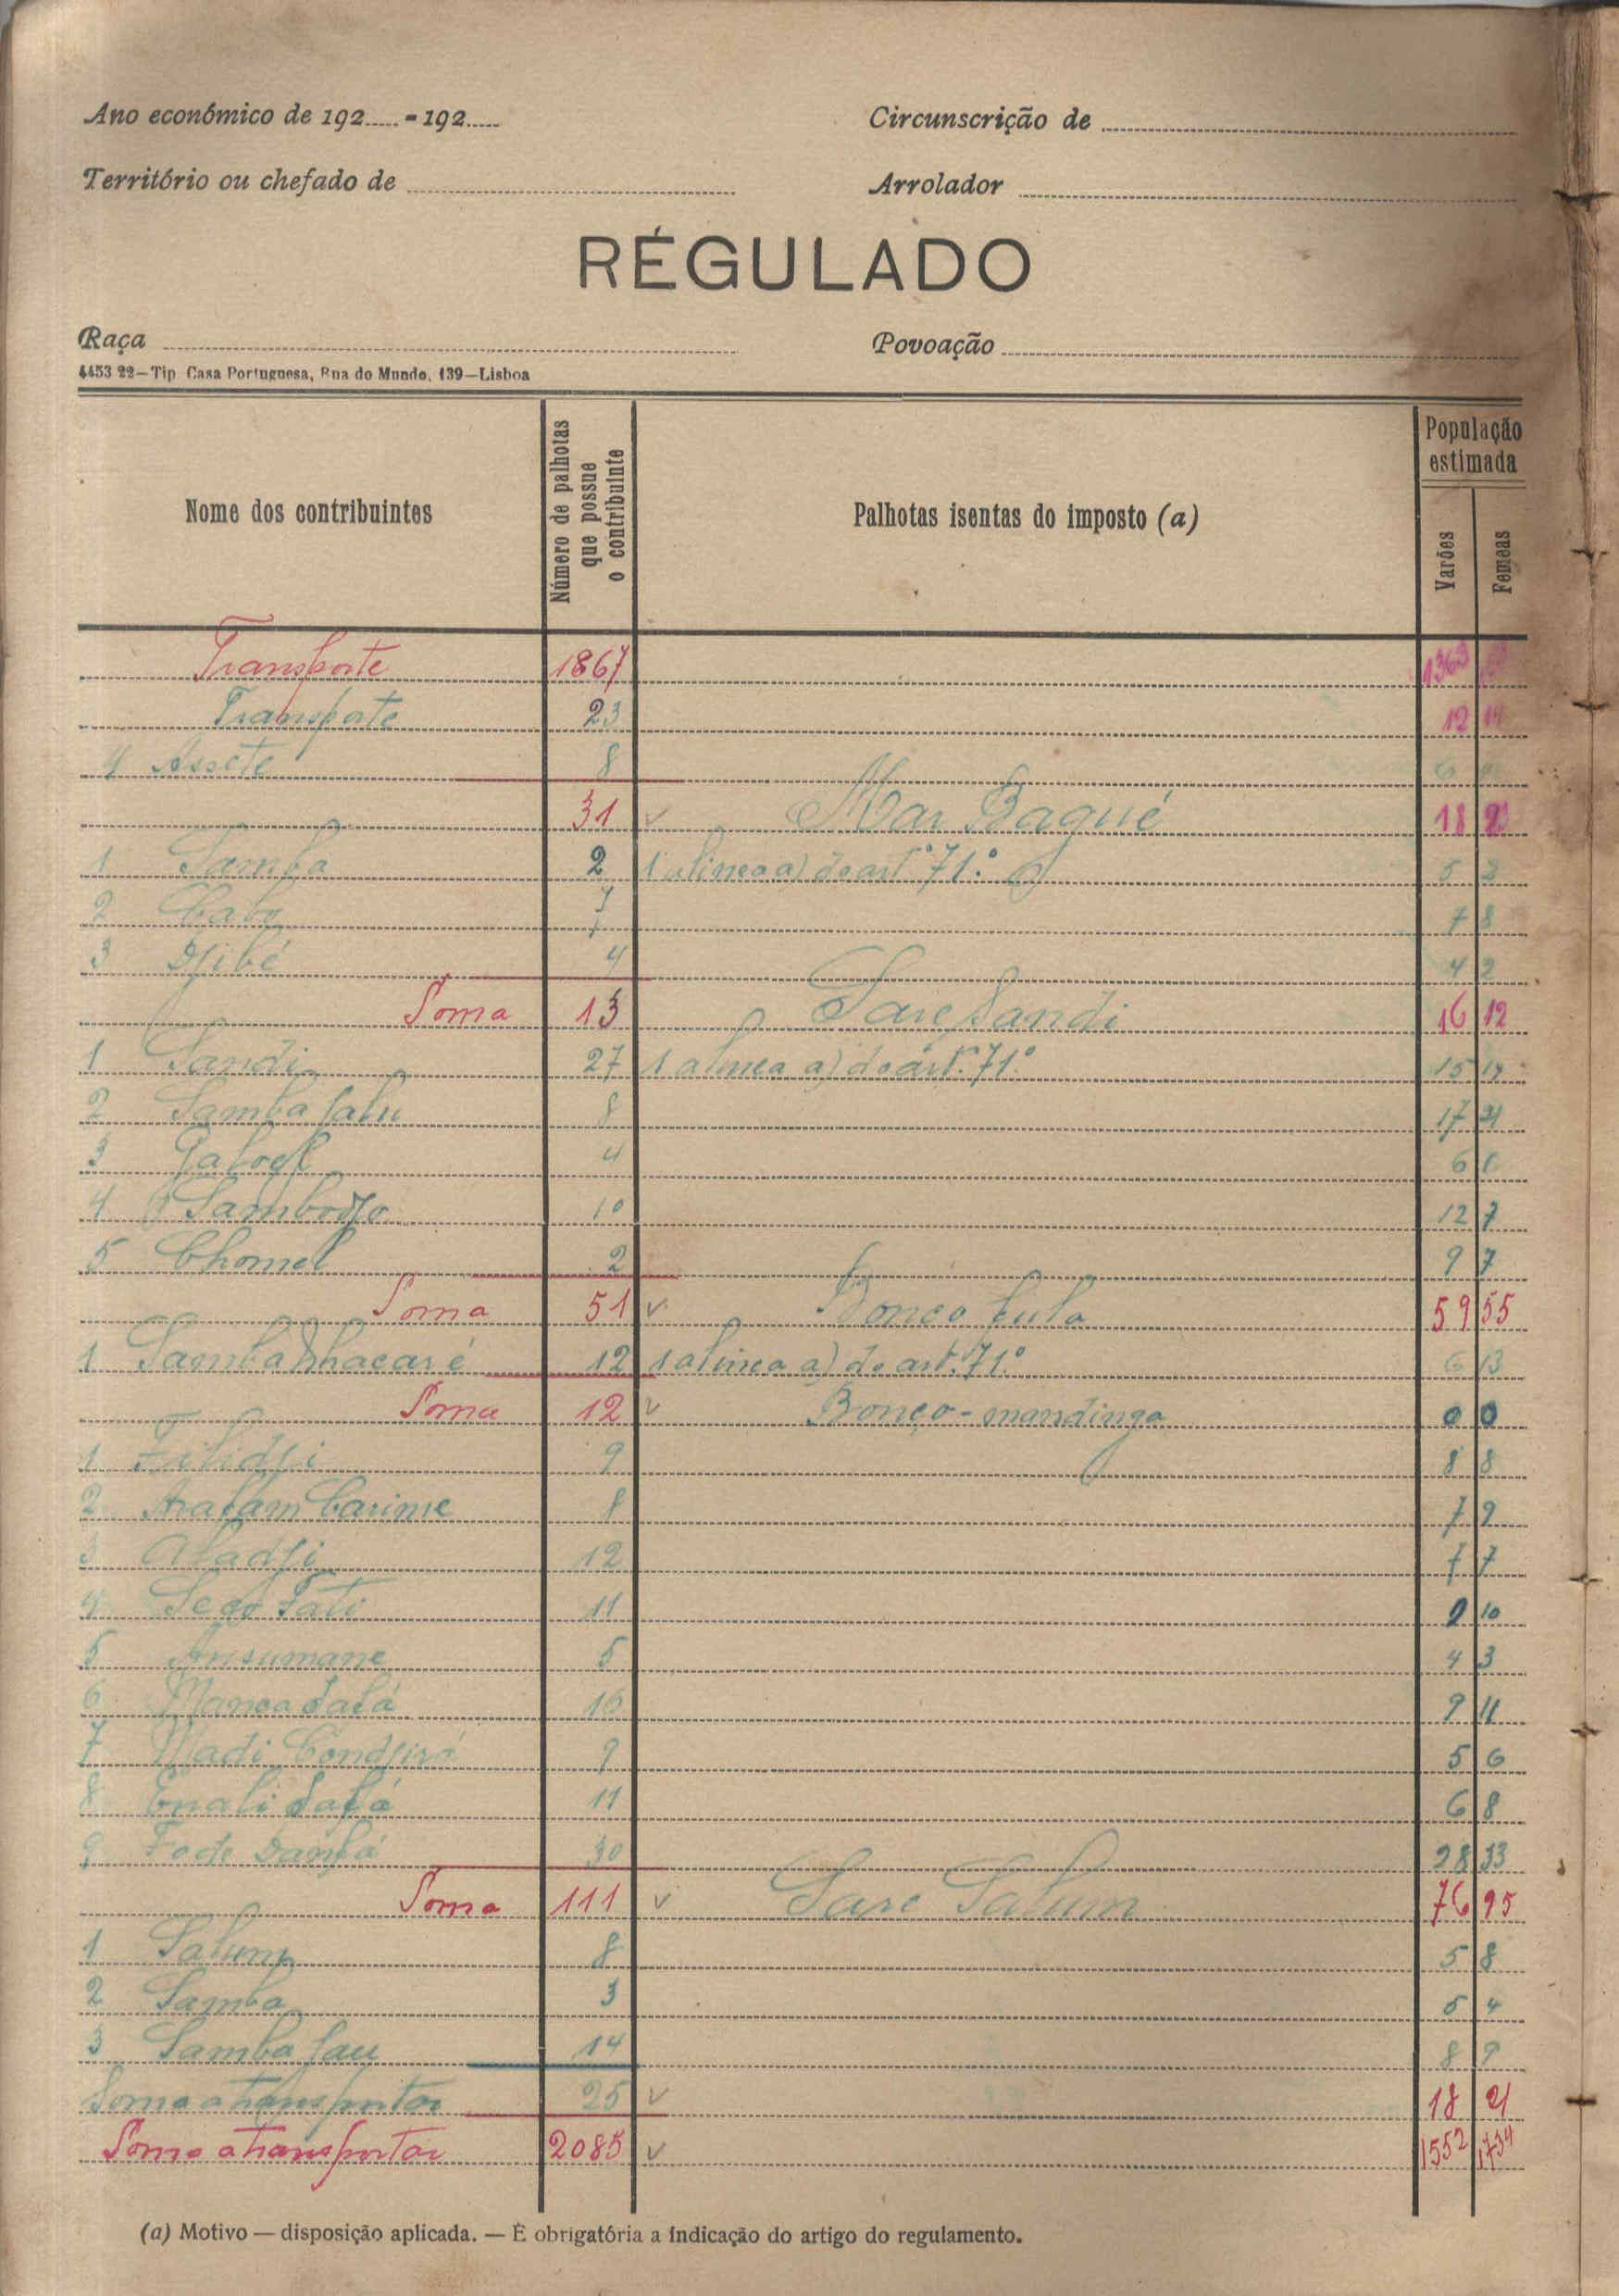 Ano económico de 192..... - 192..... Circunscrição de
Território ou chefado de Arrolador
RÉGULADO
Raça Povoação
4453 22—Tip Casa Portuguesa, Rua do Mundo, 139—Lisboa
Nome dos contribuintes Número de palhotas que possue o contribuinte Palhotas isentas do imposto (a) População estimada Varões Femeas
Transporte 1867 1363
Transporte 23 12 14
4 Assete 8 6
31 v Mar Bagué 18
1 Samba 2 1 alinea a) do artº 71.º 5 2
2 7 7 8
3 Djibé 4 4 2
Soma 13 Sare Sandi 16 12
1 Sandi 27 1 alinea a) do artº. 71º 15 14
2 Samba Salu 8 17 21
3 4 6
4 Sambodjo 10 12 7
5 Chomel 2 9 7
Soma 51 v Bonco fula 59 55
1 Samba Dhacaré 12 1 alinea a) do art. 71.º 6 13
Soma 12 v Bonço-mandinga 0 0
1 9 8 8
2 Arafam Carime 8 7 9
3 Aladji 12 7 7
4 Seco Fati 11 2 10
5 Ansumane 5 4 3
6 Manca Safá 16 9 11
7 Madi 9 5 6
8 Enali Safá 11 6 8
9 Fode Danfá 30 28 33
Soma 111 v Sare Salum 76 95
1 Salum 8 5 8
2 Samba 3 5 4
3 Samba Sau 14 8 9
Soma a transportar 25 v 18 21
Soma a transportar 2085 v 1552 1734
(a) Motivo — disposição aplicada. — É obrigatória a indicação do artigo do regulamento.